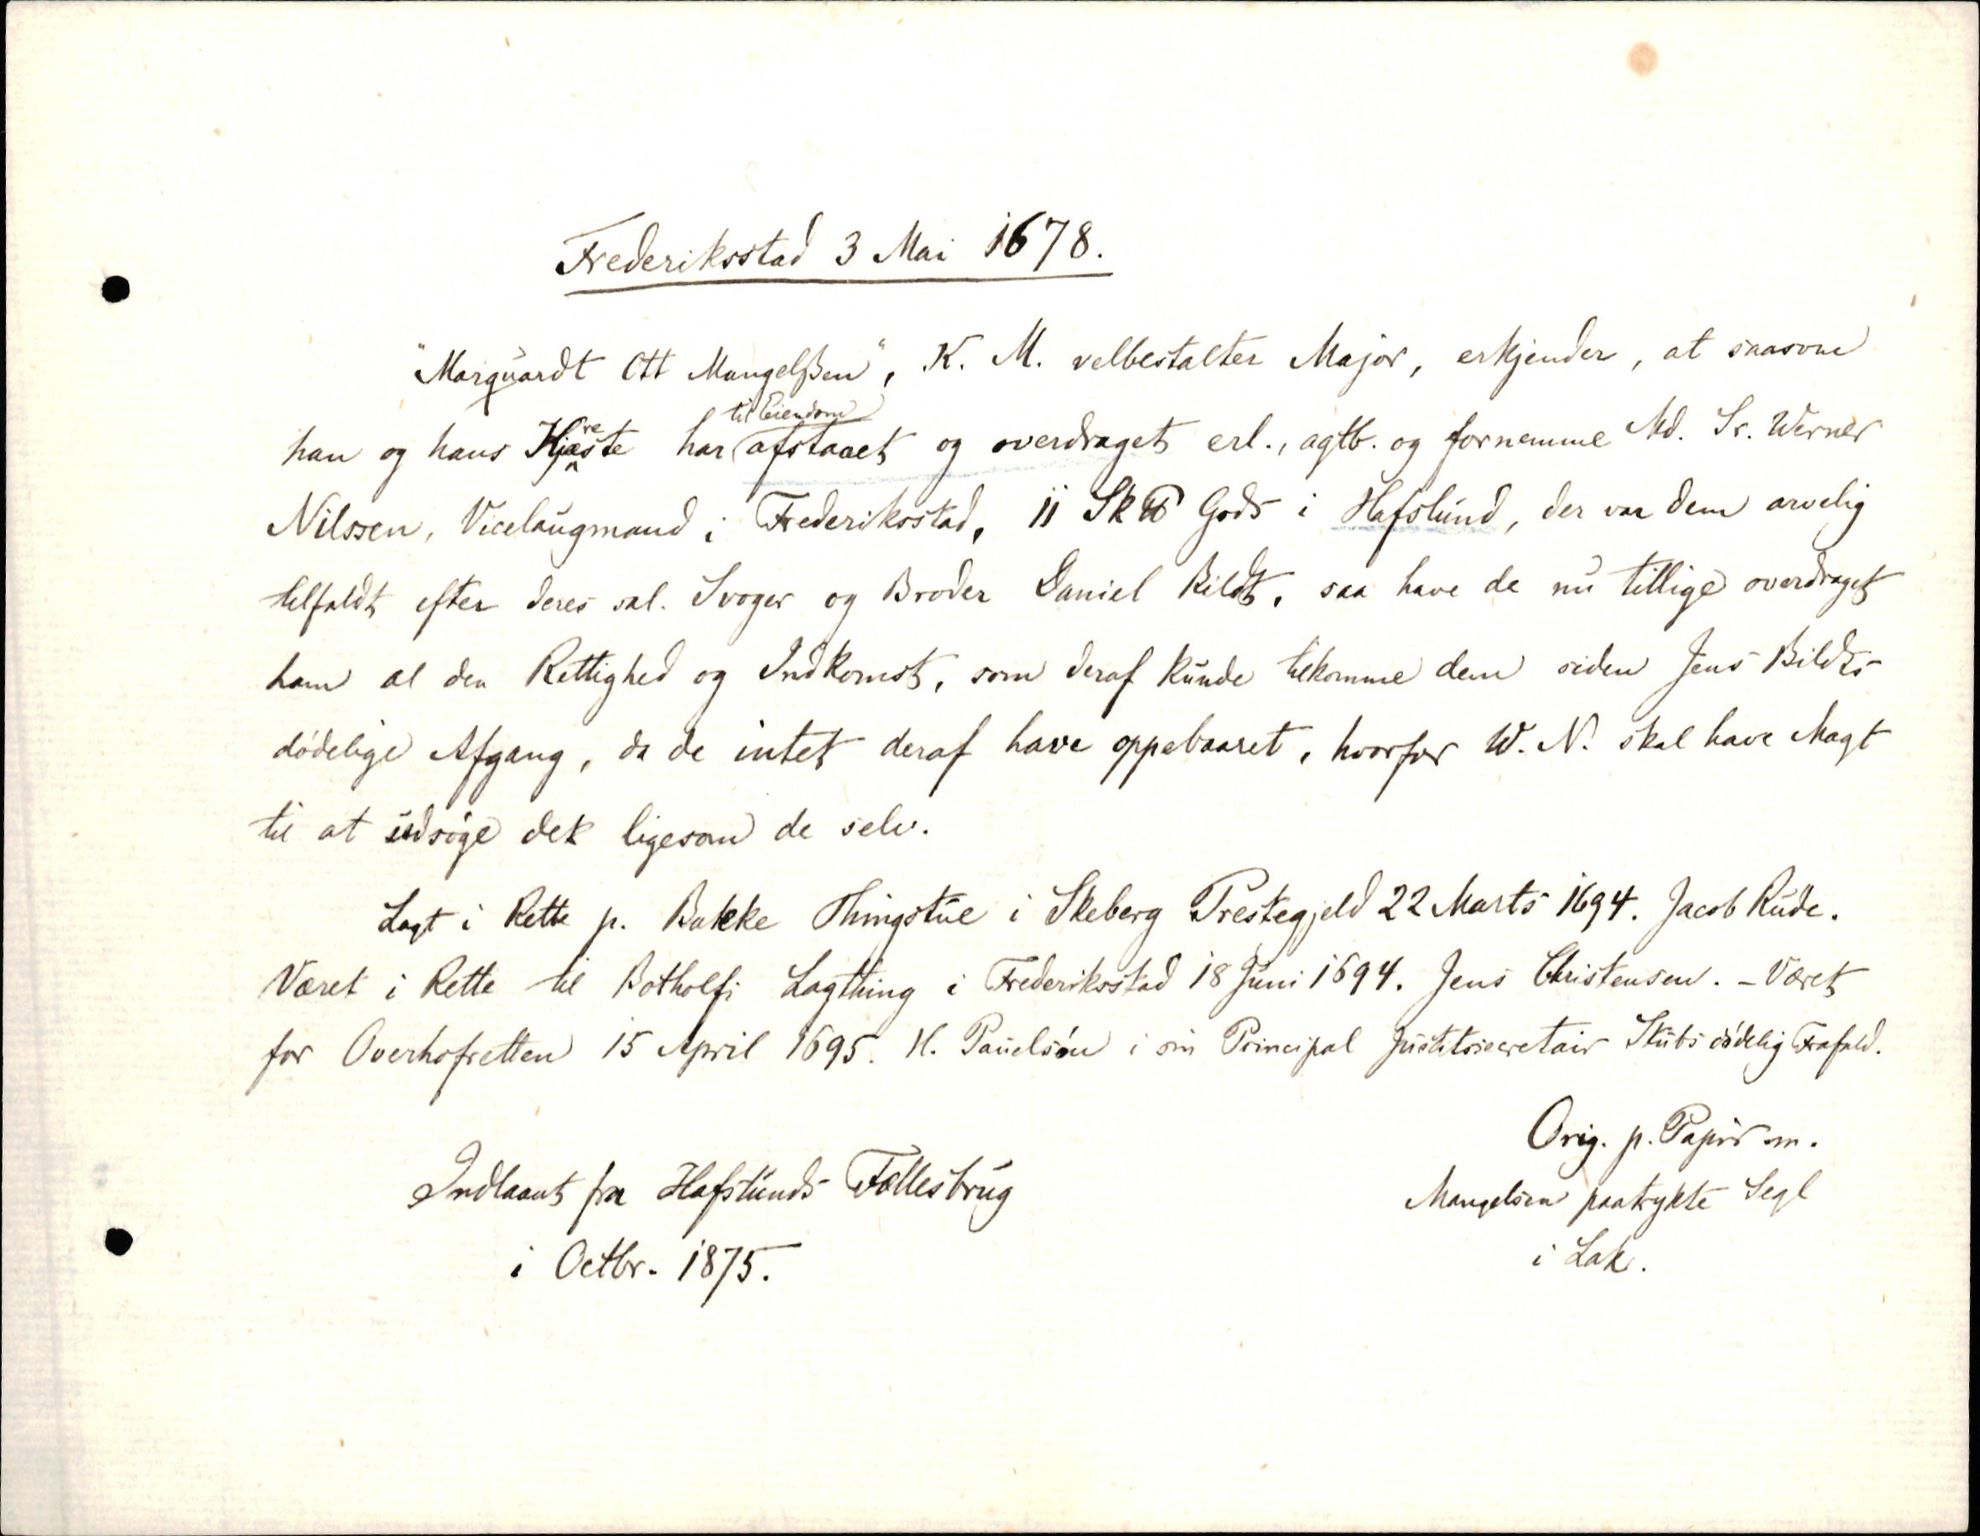 Frederiksstad 3 Mai 1678.
"Marquardt Ott Mangelßen", K. M. velbestalter Major, erkjender, at saasom
han og hans Kjæreste har til Eiendom afstaaet og overdraget erl., agtb. og fornemme Md. Sr. Werner
Nilssen, Vicelaugmand i Frederiksstad, 11 Sk℔ Gods i Hafslund, der var dem arvelig
tilfaldt efter deres sal. Svoger og Broder Daniel Bildt, saa have de nu tillige overdraget
ham al den Rettighed og Indkomst, som deraf kunde tilkomme dem siden Jens Bildts
dødelige Afgang, da de intet deraf have oppebaaret, hvorfor W. N. skal have Magt
til at udsøge det ligesom de selv.
Lagt i Rette p. Bakke Thingstue i Skeberg Prestegjeld 22 Marts 1694. Jacob Rude.
Været i Rette til Botholfi Lagthing i Frederiksstad 18 Juni 1694. Jens Christensen. - Været
for Overhofretten 15 April 1695. H. Pauelsøn i sin Principal Justitssecretair Stubs dødelig Frafald.
Orig. p. Papir m.
Mangelsen paatrykte Segl
i Lak.
Indlaant fra Hafslunds Fællesbrug
i Octbr. 1875.